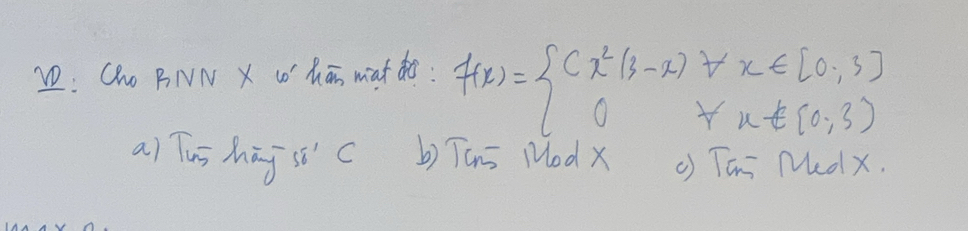 VD: Cho BNN X có hàm mật độ: f(x) = { Cx²(3-x) ∀ x ∈ [0; 3]
0 ∀ x ∉ [0; 3)
a) Tìm hằng số C b) Tìm Mod X c) Tìm Med X.
max